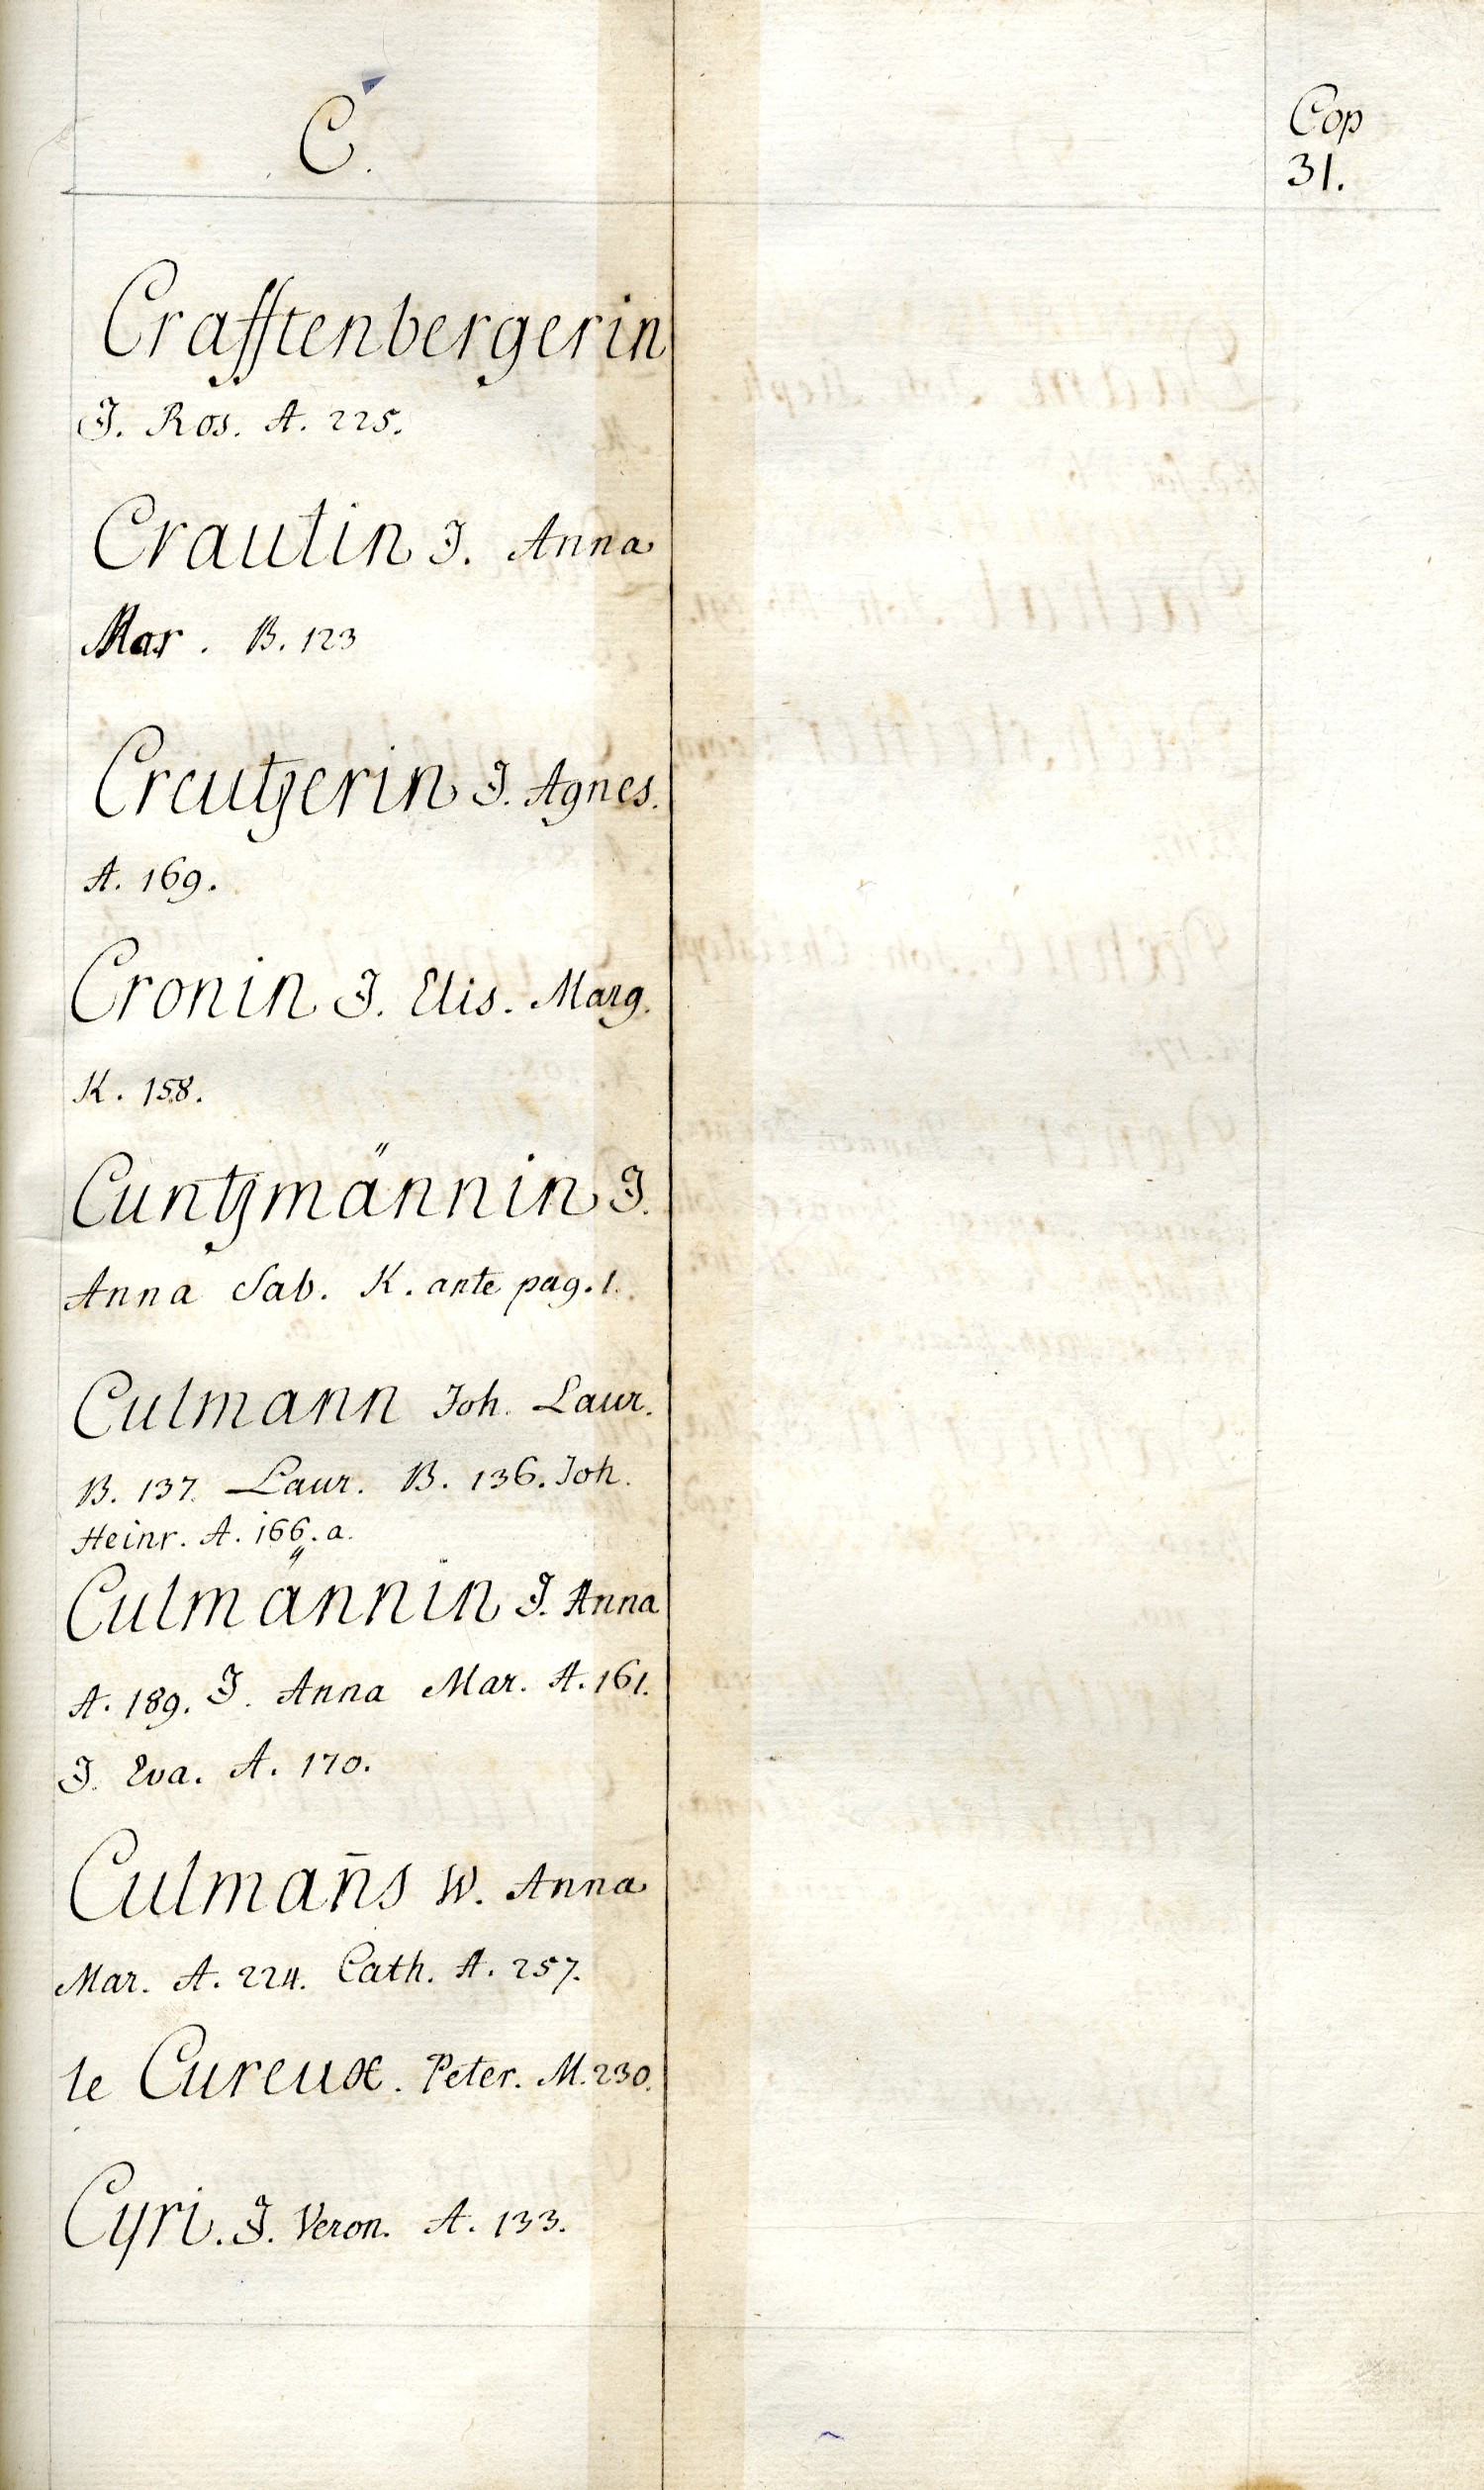 C.
Cop
31.
Crafftenbergerin
J. Ros. A. 225.
Crautin J. Anna
Mar. B. 123
Creutzerin J. Agnes.
A. 169.
Cronin J. Elis. Marg.
K. 158.
Cuntzmännin J.
Anna Sab. K. ante pag. 1.
Culmann Joh. Laur.
B. 137. Laur. B. 136. Joh.
Heinr. A. 166. a.
Culmännin J. Anna
A. 189. J. Anna Mar. A. 161.
J. Eva. A. 170.
Culman̄s W. Anna
Mar. A. 224. Cath. A. 257.
le Cureux. Peter. M. 230.
Cyri. J. Veron. A. 133.